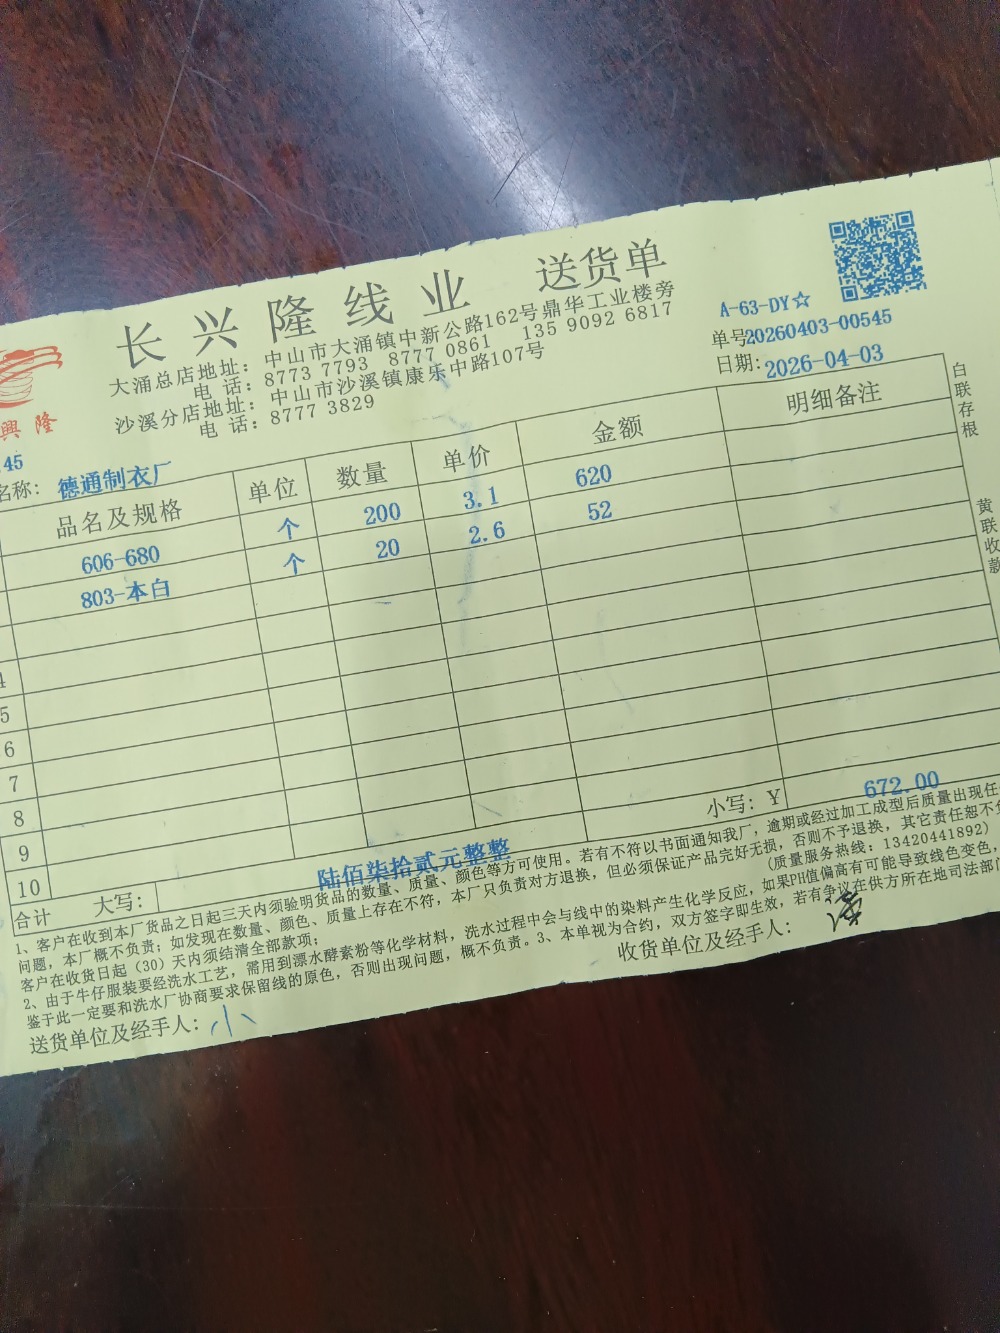 长兴隆线业 送货单
大涌总店地址：中山市大涌镇中新公路162号鼎华工业楼旁
电 话：8773 7793 8777 0861 135 9092 6817
沙溪分店地址：中山市沙溪镇康乐中路107号
电 话：8777 3829
A-63-DY☆
单号20260403-00545
日期：2026-04-03
興隆
45
名称：德通制衣厂
品名及规格 单位 数量 单价 金额 明细备注
606-680 个 200 3.1 620
803-本白 个 20 2.6 52
4
5
6
7
8
9
10
小写：Y 672.00
合计 大写：陆佰柒拾贰元整整
1、客户在收到本厂货品之日起三天内须验明货品的数量、质量、颜色等方可使用。若有不符以书面通知我厂，逾期或经过加工成型后质量出现任
问题，本厂概不负责；如发现在数量、颜色、质量上存在不符，本厂只负责对方退换，但必须保证产品完好无损，否则不予退换，其它责任恕不负
客户在收货日起（30）天内须结清全部款项； （质量服务热线：13420441892）
2、由于牛仔服装要经洗水工艺，需用到漂水酵素粉等化学材料，洗水过程中会与线中的染料产生化学反应，如果PH值偏高有可能导致线色变色，
鉴于此一定要和洗水厂协商要求保留线的原色，否则出现问题，概不负责。3、本单视为合约，双方签字即生效，若有争议在供方所在地司法部门
送货单位及经手人：小
收货单位及经手人：
白联存根
黄联收款